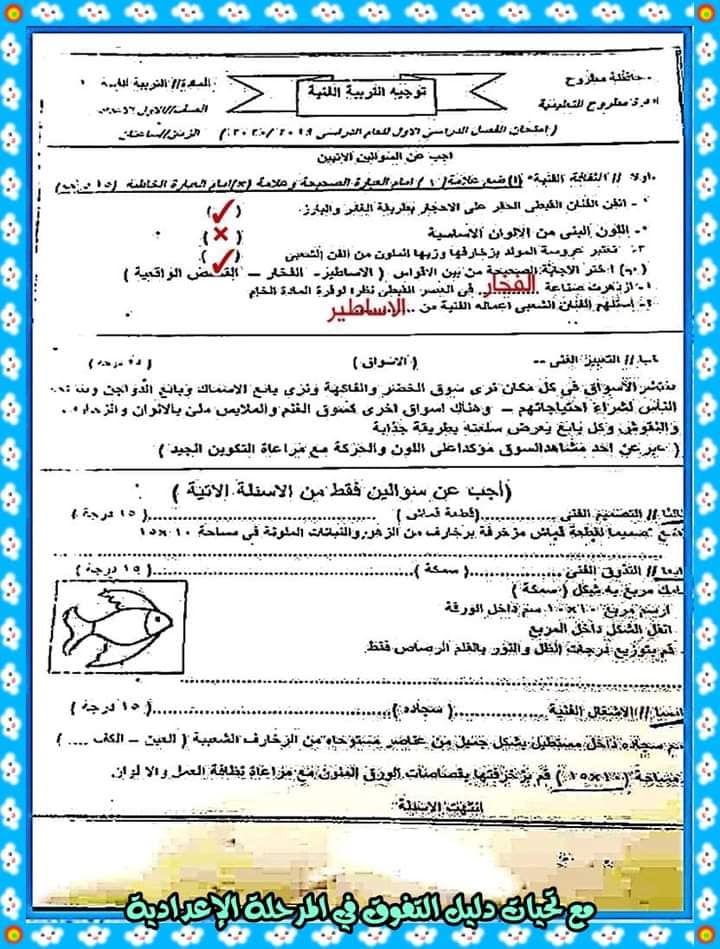 محافظة مطروح
توجيه التربية الفنية
المادة// التربية الفنية
ادارة مطروح التعليمية
الصف// الاول الاعدادى
(إمتحان الفصل الدراسي الاول للعام الدراسى ٢٠١٩/٢٠٢٠)
الزمن// ساعتان
اجب عن السؤالين الاتيين
اولا // الثقافة الفنية* (ا) ضع علامة (√) امام العبارة الصحيحة وعلامة (×) امام العبارة الخاطئة (١٥ درجة)
١- اتقن الفنان القبطى الحفر على الاحجار بطريقة الغائر والبارز. (✓)
٢- اللون البنى من الالوان الاساسية (×)
٣- تعتبر عروسة المولد بزخارفها وزيها الملون من الفن الشعبى (✓)
(ب) اختر الاجابة الصحيحة من بين الاقواس (الاساطير- الفخار – القصص الواقعية)
١- ازدهرت صناعة الفخار فى العصر القبطى نظرا لوفرة المادة الخام
٢- استلهم الفنان الشعبى اعماله الفنية من .. الاساطير
ثانيا // التعبير الفنى -- (الاسواق) ( درجة)
تنتشر الأسواق في كل مكان نرى سوق الخضر والفاكهة ونري بائع الاسماك وبائع الدواجن
الناس لشراء احتياجاتهم – وهناك اسواق اخرى كسوق الغنم والملابس ملئ بالالوان والزخارف
والنقوش وكل بائع يعرض سلعته بطريقة جذابة
(عبر عن احد مشاهد السوق مؤكدا على اللون والحركة مع مراعاة التكوين الجيد)
(أجب عن سؤالين فقط من الاسئلة الاتية)
ثالثا // التصميم الفنى ..........(قطعة قماش) ..........(١٥ درجة)
تصميما لقطعة قماش مزخرفة بزخارف من الزهور والنباتات الملونة فى مساحة ١٠×١٥
رابعا // التذوق الفنى ..........(سمكة) ..........(١٥ درجة)
امامك مربع به شكل (سمكة)
ارسم مربع ١٠×١٠ سم داخل الورقة
انقل الشكل داخل المربع
قم بتوزيع درجات الظل والنور بالقلم الرصاص فقط
خامسا // الاشغال الفنية ..........(سجاده) ..........(١٥ درجة)
سجاده داخل مستطيل بشكل جميل من عناصر مستوحاه من الزخارف الشعبية (العين – الكف ....)
مساحة (١٠×١٥) قم بزخرفتها بقصاصات الورق الملون مع مراعاة نظافة العمل والالوان.
انتهت الاسئلة
مع تحيات دليل التفوق في المرحلة الإعدادية